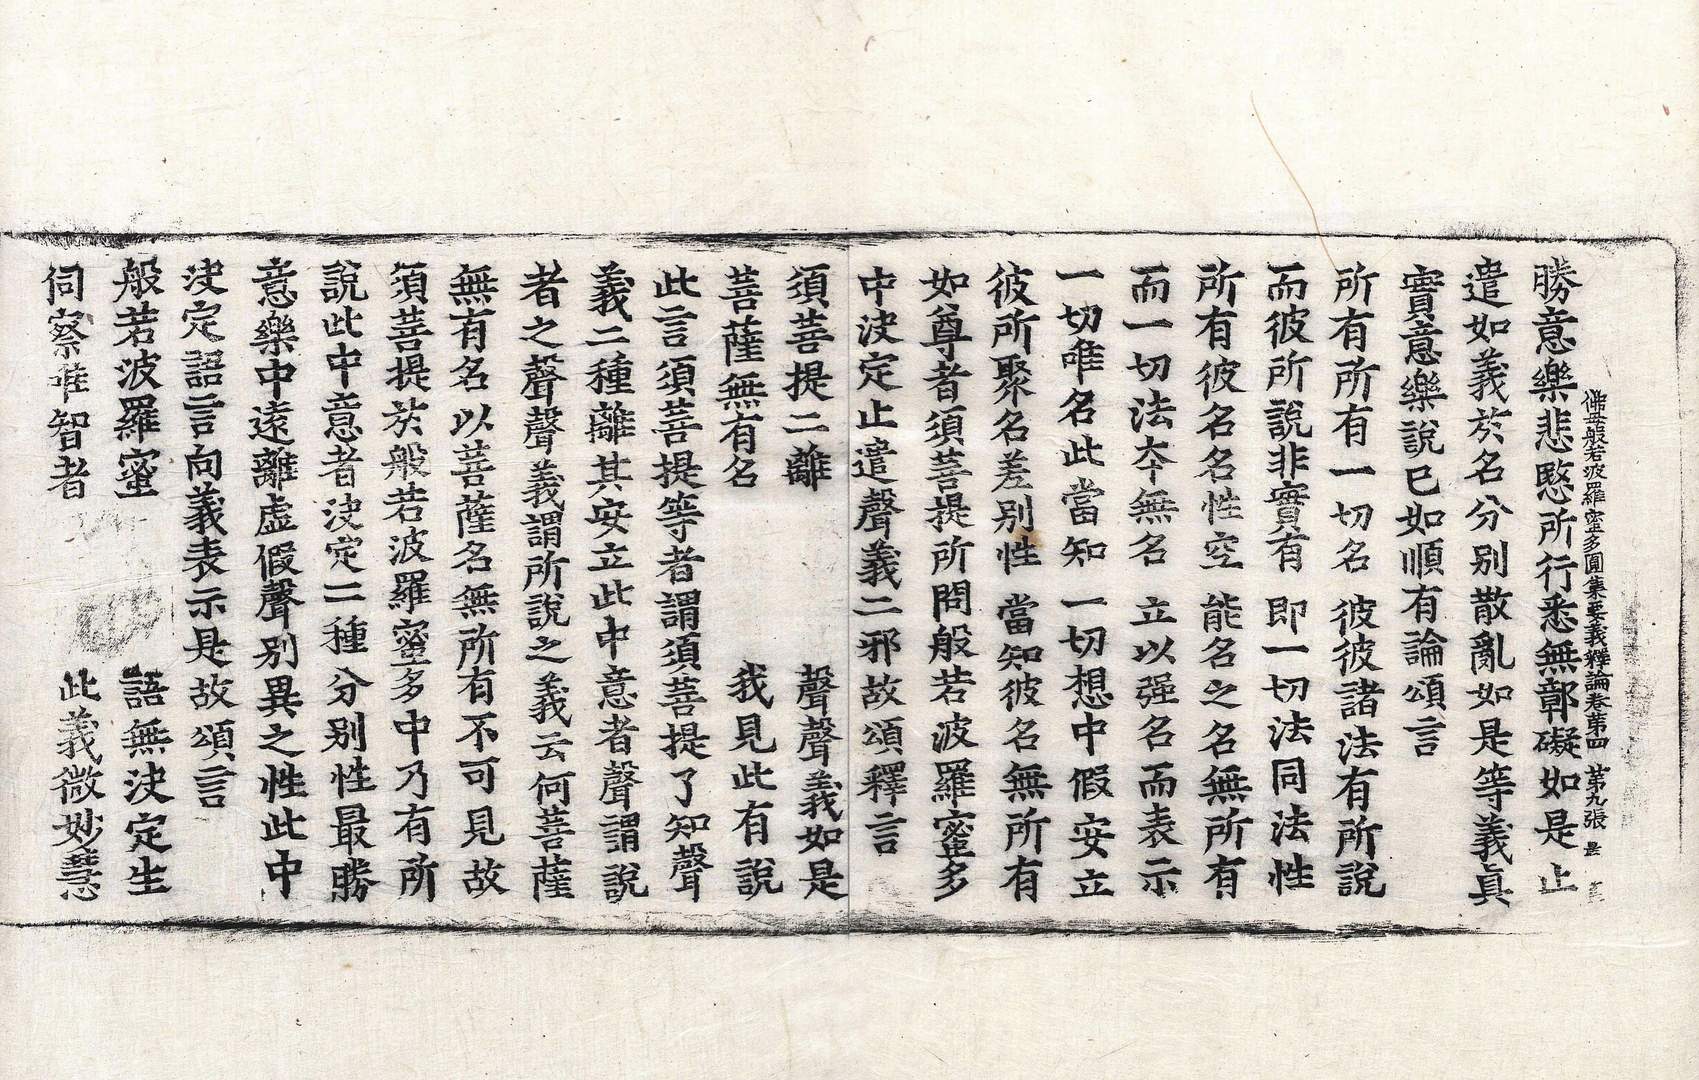 佛母般若波羅蜜多圓集要義釋論卷第四　第九張　是
勝意樂悲愍所行悉無鄣礙如是止
遣如義於名分別散亂如是等義眞
實意樂說已如順有論頌言
所有所有一切名　彼彼諸法有所說
而彼所說非實有　即一切法同法性
所有彼名名性空　能名之名無所有
而一切法本無名　立以强名而表示
一切唯名此當知　一切想中假安立
彼所聚名差別性　當知彼名無所有
如尊者須菩提所問般若波羅蜜多
中決定止遣聲義二邪故頌釋言
須菩提二離　聲聲義如是
菩薩無有名　我見此有說
此言須菩提等者謂須菩提了知聲
義二種離其安立此中意者聲謂說
者之聲聲義謂所說之義云何菩薩
無有名以菩薩名無所有不可見故
須菩提於般若波羅蜜多中乃有所
說此中意者決定二種分別性最勝
意樂中遠離虛假聲別異之性此中
決定語言向義表示是故頌言
般若波羅蜜　語無決定生
伺察唯智者　此義微妙慧